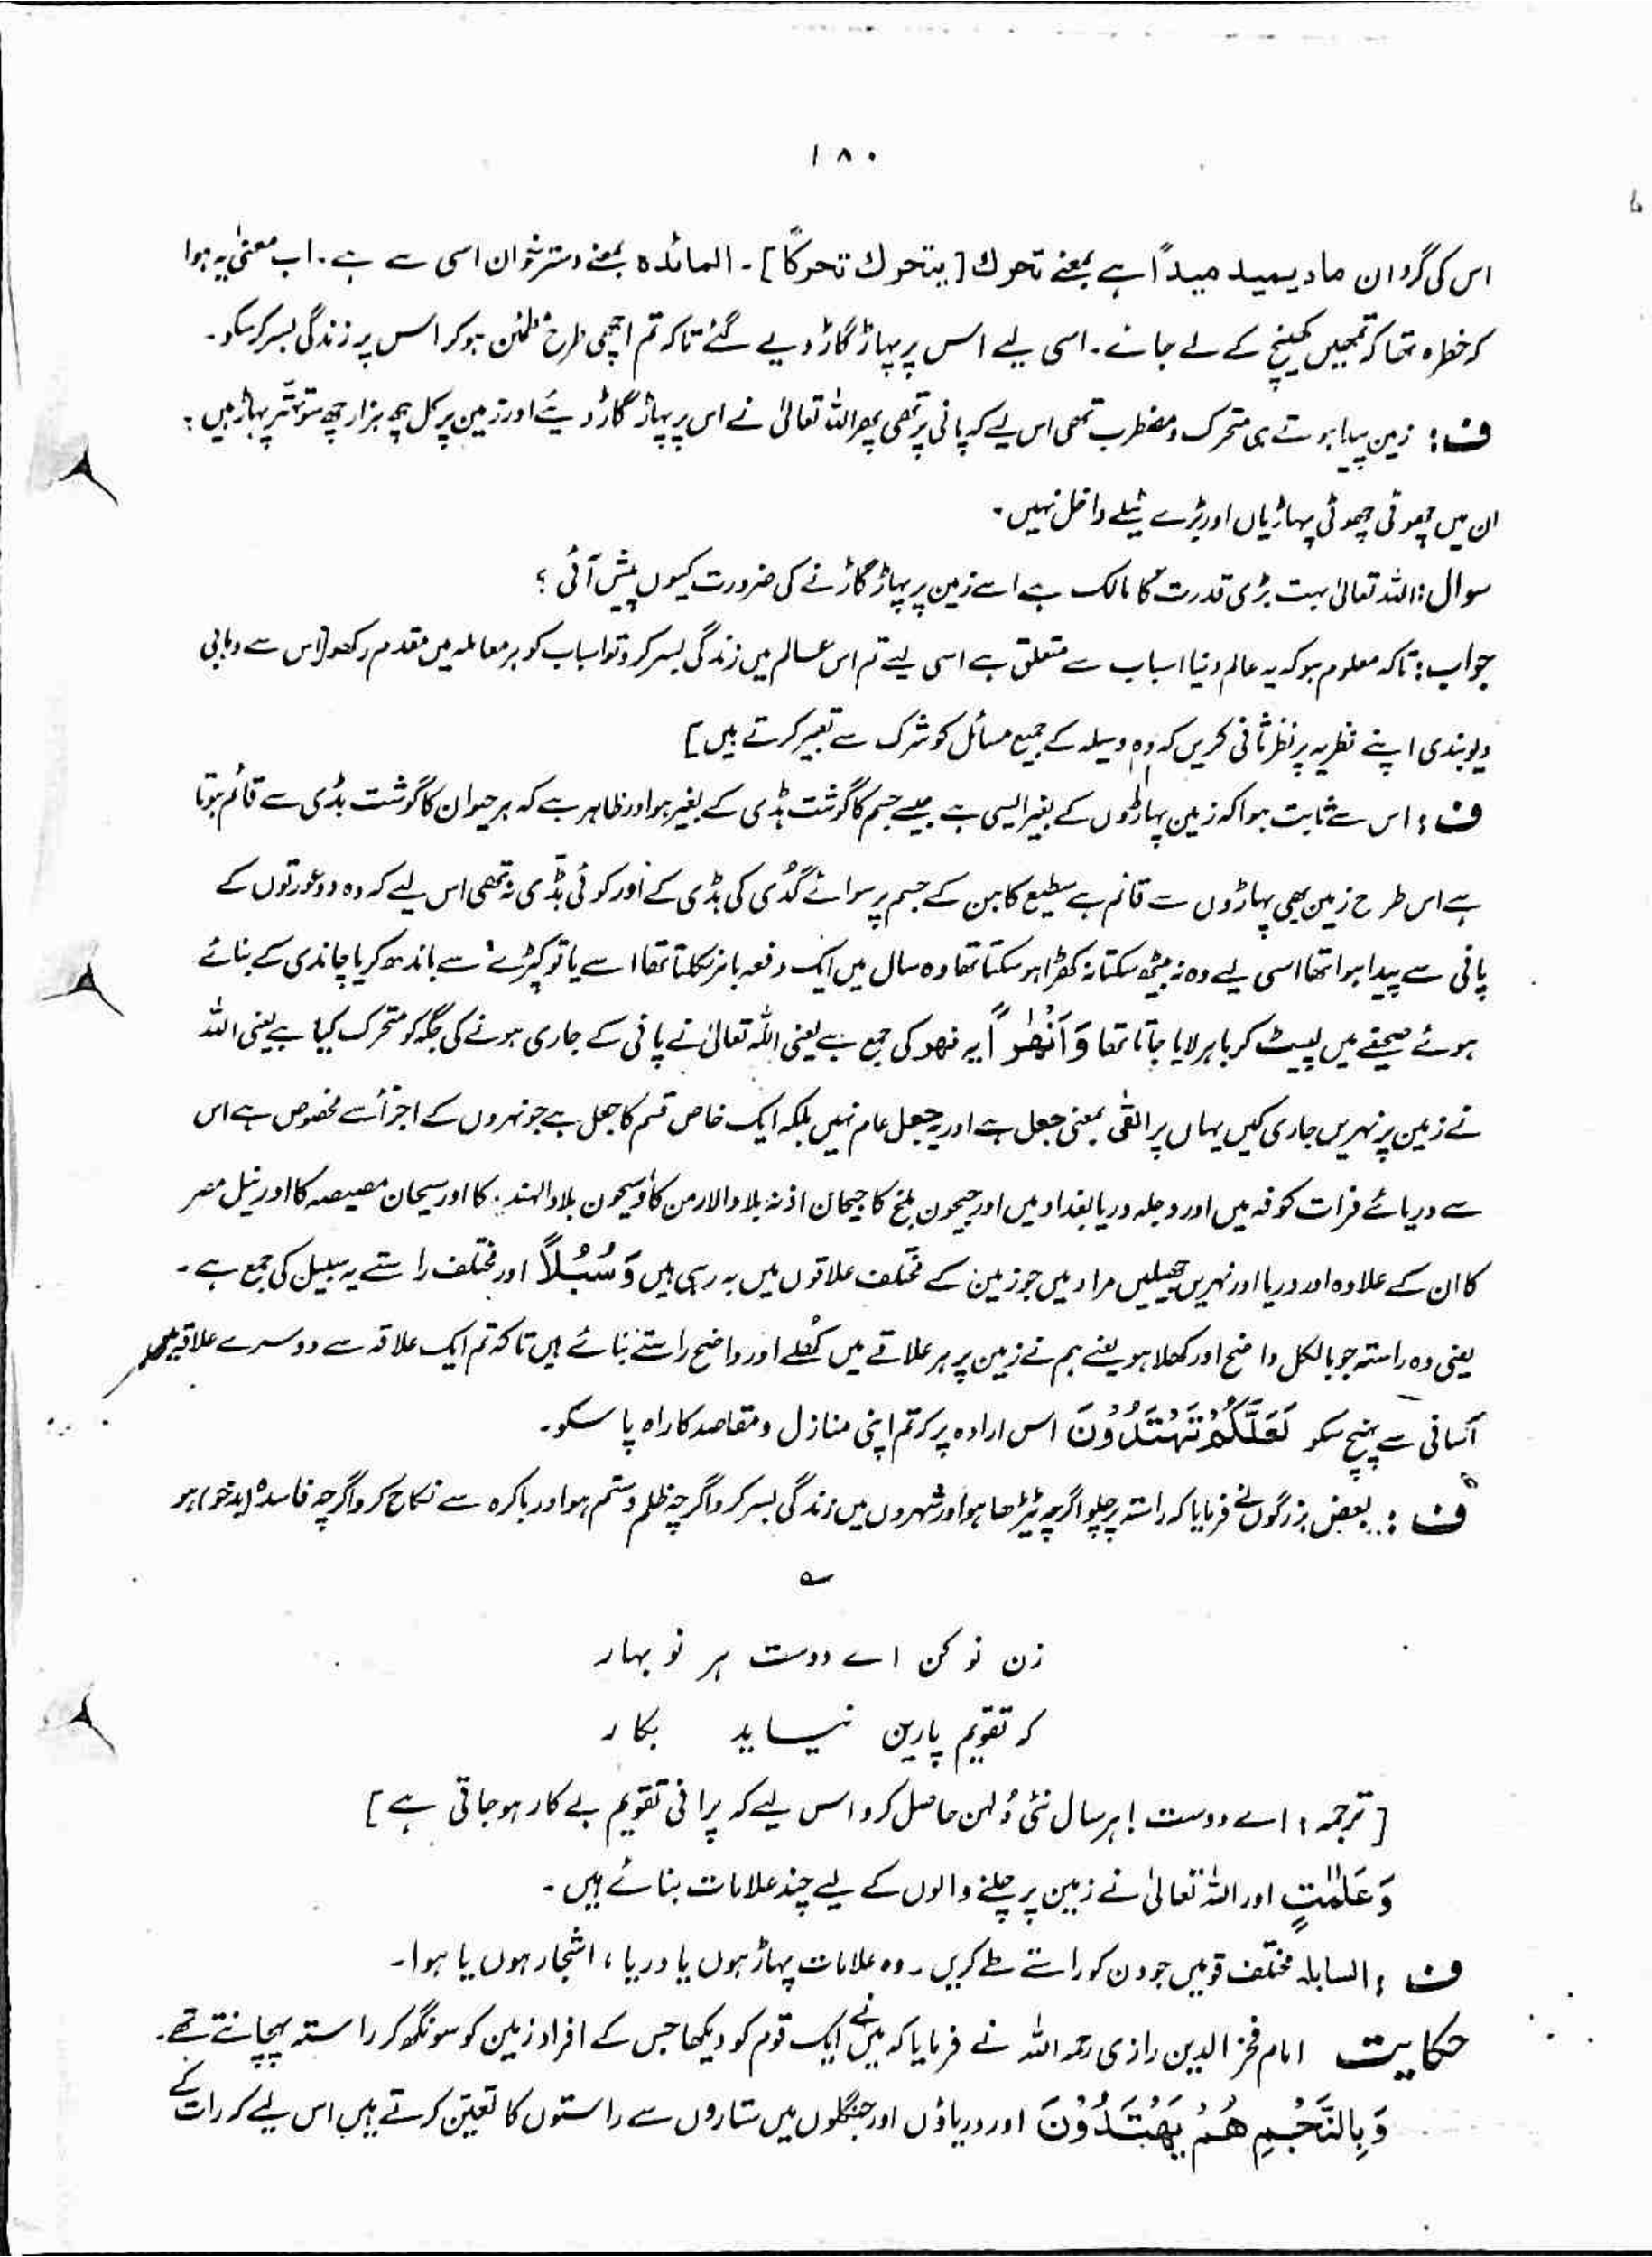 ۱۸۰
اس کی گردان ماد یمید میداً ہے بمعنے تحرك [یتحرك تحرکاً] ۔ المائدہ بمعنے دسترخوان اسی سے ہے ۔ اب معنیٰ یہ ہوا
کہ خطرہ تھا کہ تمھیں کھینچ کے لے جائے ۔ اسی لیے اس پر پہاڑ گاڑ دیے گئے تاکہ تم اچھی طرح مطمئن ہو کر اس پر زندگی بسر کر سکو ۔
ف : زمین پیدا ہوتے ہی متحرک و مضطرب تھی اس لیے کہ پانی پر تھی پھر اللہ تعالیٰ نے اس پر پہاڑ گاڑ دیئے اور زمین پر کل چھ ہزار چھ سو تہتّر پہاڑ ہیں :
ان میں چھوٹی چھوٹی پہاڑیاں اور بڑے ٹیلے داخل نہیں ۔
سوال : اللہ تعالیٰ بہت بڑی قدرت کا مالک ہے اسے زمین پر پہاڑ گاڑنے کی ضرورت کیوں پیش آئی ؟
جواب : تاکہ معلوم ہو کہ یہ عالم دنیا اسباب سے متعلق ہے اسی لیے تم اس عالم میں زندگی بسر کرو تو اسباب کو ہر معاملہ میں مقدم رکھو [اس سے وہابی
دیوبندی اپنے نظریہ پر نظر ثانی کریں کہ وہ وسیلہ کے جمیع مسائل کو شرک سے تعبیر کرتے ہیں]
ف : اس سے ثابت ہوا کہ زمین پہاڑوں کے بغیر ایسی ہے جیسے جسم کا گوشت ہڈی کے بغیر ہو اور ظاہر ہے کہ ہر حیوان کا گوشت ہڈی سے قائم ہوتا
ہے اس طرح زمین بھی پہاڑوں سے قائم ہے سطیع کاہن کے جسم پر سوائے گُدّی کی ہڈی کے اور کوئی ہڈّی نہ تھی اس لیے کہ وہ دو عورتوں کے
پانی سے پیدا ہوا تھا اسی لیے وہ نہ بیٹھ سکتا نہ کھڑا ہو سکتا تھا وہ سال میں ایک دفعہ باہر نکلتا تھا اسے یا تو کپڑے سے باندھ کر یا چاندی کے بنائے
ہوئے صحیفے میں لپیٹ کر باہر لایا جاتا تھا وَ اَنْهٰراً یہ نهر کی جمع ہے یعنی اللہ تعالیٰ نے پانی کے جاری ہونے کی جگہ کو متحرک کیا ہے یعنی اللہ
نے زمین پر نہریں جاری کیں یہاں پر القٰی بمعنی جعل ہے اور یہ جعل عام نہیں بلکہ ایک خاص قسم کا جعل ہے جو نہروں کے اجزأ سے مخصوص ہے اس
سے دریائے فرات کوفہ میں اور دجلہ دریا بغداد میں اور جیحون بلخ کا جیحان اذنہ بلاد الارمن کا و سیحون بلاد الہند کا اور سیحان مصیصہ کا اور نیل مصر
کا ان کے علاوہ اور دریا اور نہریں جھیلیں مراد ہیں جو زمین کے مختلف علاقوں میں بہ رہی ہیں وَ سُبُلاً اور مختلف راستے یہ سبیل کی جمع ہے ۔
یعنی وہ راستہ جو بالکل واضح اور کھلا ہو یعنے ہم نے زمین پر ہر علاقے میں کُھلے اور واضح راستے بنائے ہیں تاکہ تم ایک علاقہ سے دوسرے علاقہ میں
آسانی سے پہنچ سکو لَعَلَّكُمْ تَهْتَدُوْنَ اس ارادہ پر کہ تم اپنی منازل و مقاصد کا راہ پا سکو ۔
ف : بعض بزرگوں نے فرمایا کہ راستہ پر چلو اگرچہ ٹیڑھا ہو اور شہروں میں زندگی بسر کرو اگرچہ ظلم و ستم ہو اور باکرہ سے نکاح کرو اگرچہ فاسدہ (بدخو) ہو
ے
زن نو کن اے دوست ہر نو بہار
کہ تقویم پارین نیساید بکار
[ترجمہ : اے دوست ! ہر سال نئی دُلہن حاصل کرو اس لیے کہ پرانی تقویم بے کار ہو جاتی ہے]
وَ عَلٰمٰتٍ اور اللہ تعالیٰ نے زمین پر چلنے والوں کے لیے چند علامات بنائے ہیں ۔
ف : السابلہ مختلف قومیں جو دن کو راستے طے کریں ۔ وہ علامات پہاڑ ہوں یا دریا ، اشجار ہوں یا ہوا ۔
حکایت امام فخر الدین رازی رحمہ اللہ نے فرمایا کہ میں نے ایک قوم کو دیکھا جس کے افراد زمین کو سونگھ کر راستہ پہچانتے تھے ۔
وَ بِالنَّجْمِ هُمْ یَهْتَدُوْنَ اور دریاؤں اور جنگلوں میں ستاروں سے راستوں کا تعیّن کرتے ہیں اس لیے کہ رات کے